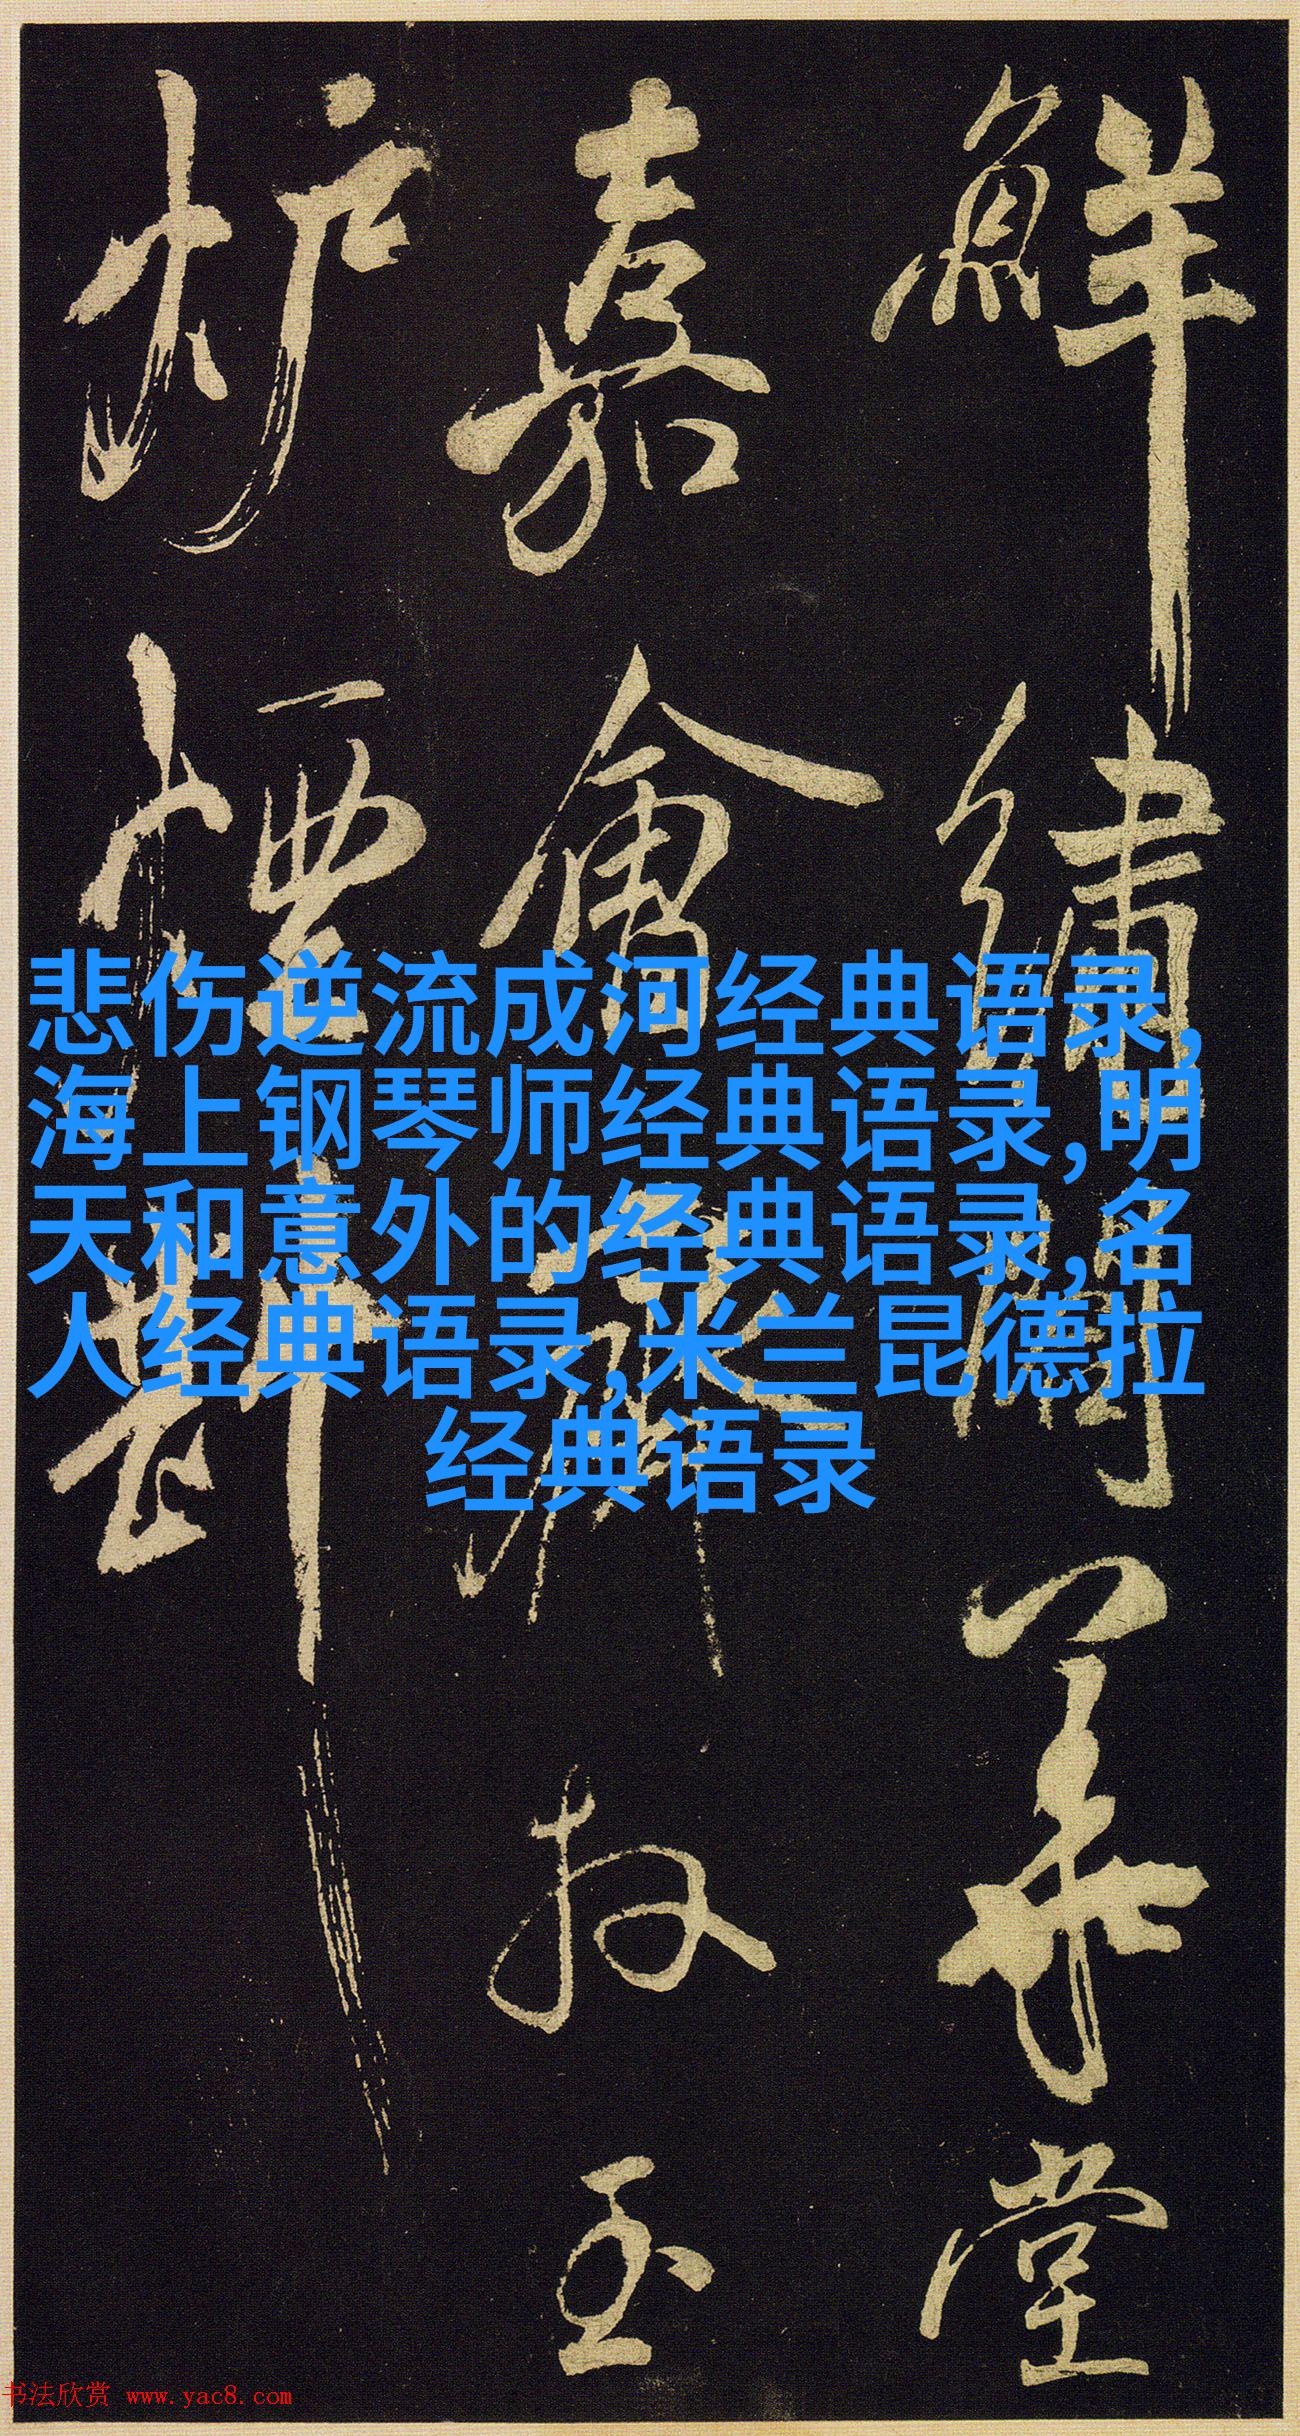 鲜绣阁华堂
嘉会
放玉
炉
悲伤逆流成河经典语录,
海上钢琴师经典语录,明
天和意外的经典语录,名
人经典语录,米兰昆德拉
经典语录
书法欣赏 www.yac8.com